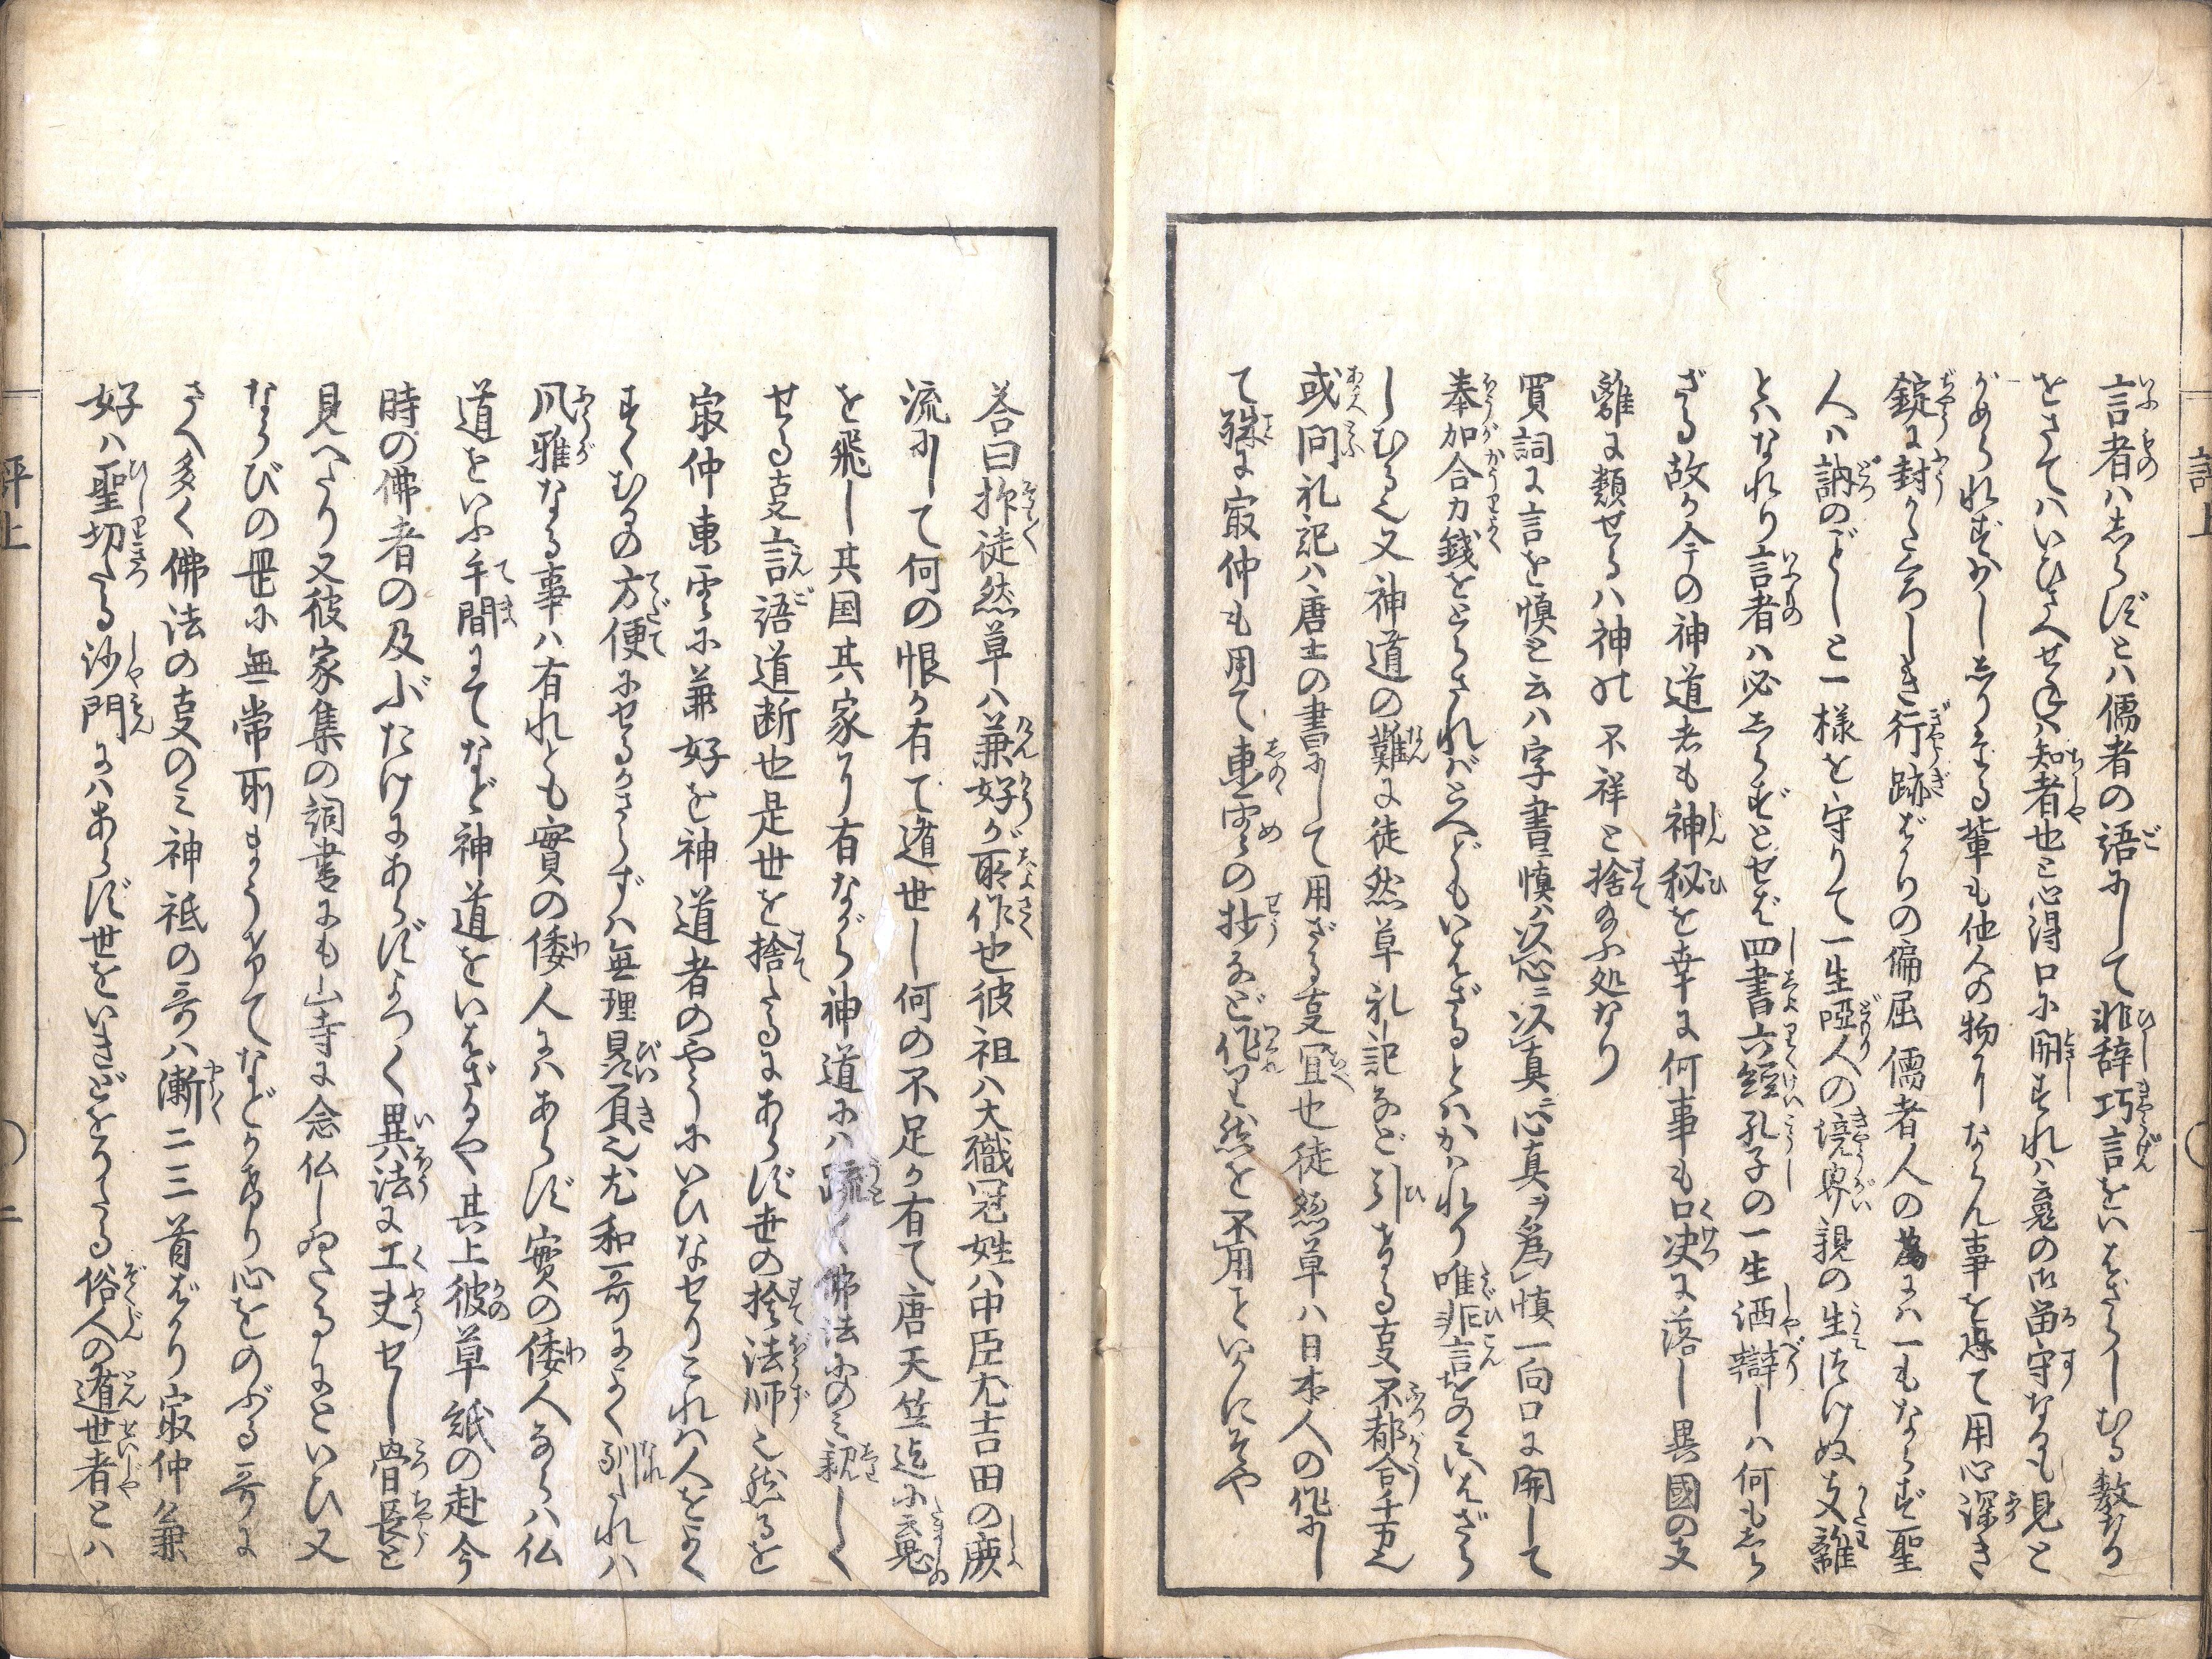 言者ハしらずとハ儒者の語にして非辞巧言をいはざらしむる教なり
をさてハいひさへせねバ知者也と心得口に閉すれハ竜の御留守なるも見と
がめられずかししりぞる輩も他人の物にならん事を恐て用心深き
錠に封をおろしき行跡ばかりの偏屈儒者人の為にハ一もならず聖
人ハ訥のごとしと一様を守りて一生啞人の境界親の生つけぬ支離
とハなれり言者ハ必しらずとせば四書六経孔子の一生洒辯しハ何もしら
ざる故か今の神道者も神秘を幸に何事も口决に落し異國の支
離に類せるハ神の不祥と捨玉ふ処なり
買詞に言を慎と云ハ字書慎ハ以心ニ以真ニ心真ヲ為慎一向口に閉して
奉加合力銭をとらされバとへどもいはざるとハかハれり唯非言をのミいはざら
しむる也又神道の難に徒然草礼記など引なる支不都合千万也
或問礼記ハ唐士の書にして用ざる支冝也徒然草ハ日本人の作にし
て殊に冣仲も用て東雲の抄など作りし然を不用といかにぞや
答曰抑徒然草ハ兼好が所作也彼祖ハ大職冠姓ハ中臣尤吉田の蕨
流にして何の恨か有て遁世し何の不足か有て唐天竺迄に竟
を飛し其国其家に有ながら神道にハ疏く佛法にのミ親しく
せる支言語道断也是世を捨たるにあらず世の捨法師也然るを
冣仲東雲に兼好を神道者のやうにいひなせりこれハ人をよく
すくむるの方便にせるかさらずハ無理贔屓也尤和哥によく馴たれハ
風雅なる事ハ有れとも實の倭人にハあらず實の倭人ならハ仏
道をいふ手間にてなど神道をいはざるや其上彼草紙の赴今
時の佛者の及ぶたけにあらずよつく異法に工夫せし骨長と
見へたり又彼家集の詞書にも山寺に念仏しゐたるにといひ又
ならびの岡に無常所まうけてなどかけり心をのぶる哥に
さへ多く佛法の支のミ神祇の哥ハ漸二三首ばかり冣仲兼
好ハ聖切たる沙門にハあらず世をいきどをりたる俗人の遁世者とハ
評上
二